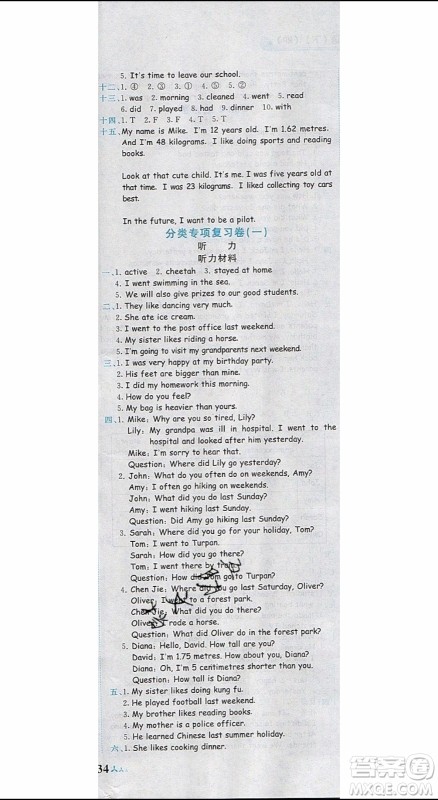 5. It's time to leave our school.
十二、1. ④ 2. ③ 3. ① 4. ⑤ 5. ②
十三、1. was 2. morning 3. cleaned 4. went 5. read
6. did 7. played 8. had 9. dinner 10. with
十四、1. T 2. F 3. F 4. T 5. T
十五、My name is Mike. I'm 12 years old. I'm 1.62 metres.
And I'm 48 kilograms. I like doing sports and reading
books.
Look at that cute child. It's me. I was five years old at
that time. I was 23 kilograms. I liked collecting toy cars
best.
In the future, I want to be a pilot.
分类专项复习卷(一)
听 力
听力材料
一、1. active 2. cheetah 3. stayed at home
4. I went swimming in the sea.
5. We will also give prizes to our good students.
二、1. They like dancing very much.
2. She ate ice cream.
3. I went to the post office last weekend.
4. My sister likes riding a horse.
5. I'm going to visit my grandparents next weekend.
三、1. I was very happy at my birthday party.
2. His feet are bigger than mine.
3. I did my homework this morning.
4. How do you feel?
5. My bag is heavier than yours.
四、1. Mike: Why are you so tired, Lily?
Lily: My grandpa was ill in hospital. I went to the
hospital and looked after him yesterday.
Mike: I'm sorry to hear that.
Question: Where did Lily go yesterday?
2. John: What do you often do on weekends, Amy?
Amy: I often go hiking on weekends.
John: What did you do last Sunday?
Amy: I went hiking last Sunday.
Question: Did Amy go hiking last Sunday?
3. Sarah: Where did you go for your holiday, Tom?
Tom: I went to Turpan.
Sarah: How did you go there?
Tom: I went there by train.
Question: How did Tom go to Turpan?
4. Chen Jie: Where did you go last Saturday, Oliver?
Oliver: I went to a forest park.
Chen Jie: What did you do there?
Oliver: I rode a horse.
Question: What did Oliver do in the forest park?
5. Diana: Hello, David. How tall are you?
David: I'm 1.75 metres. How about you, Diana?
Diana: Oh, I'm 5 centimetres shorter than you.
Question: How tall is Diana?
五、1. My sister likes doing kung fu.
2. He played football last weekend.
3. My brother likes reading books.
4. My mother is a police officer.
5. He learned Chinese last summer holiday.
六、1. She likes cooking dinner.
34
答案圈
MXQE.COM